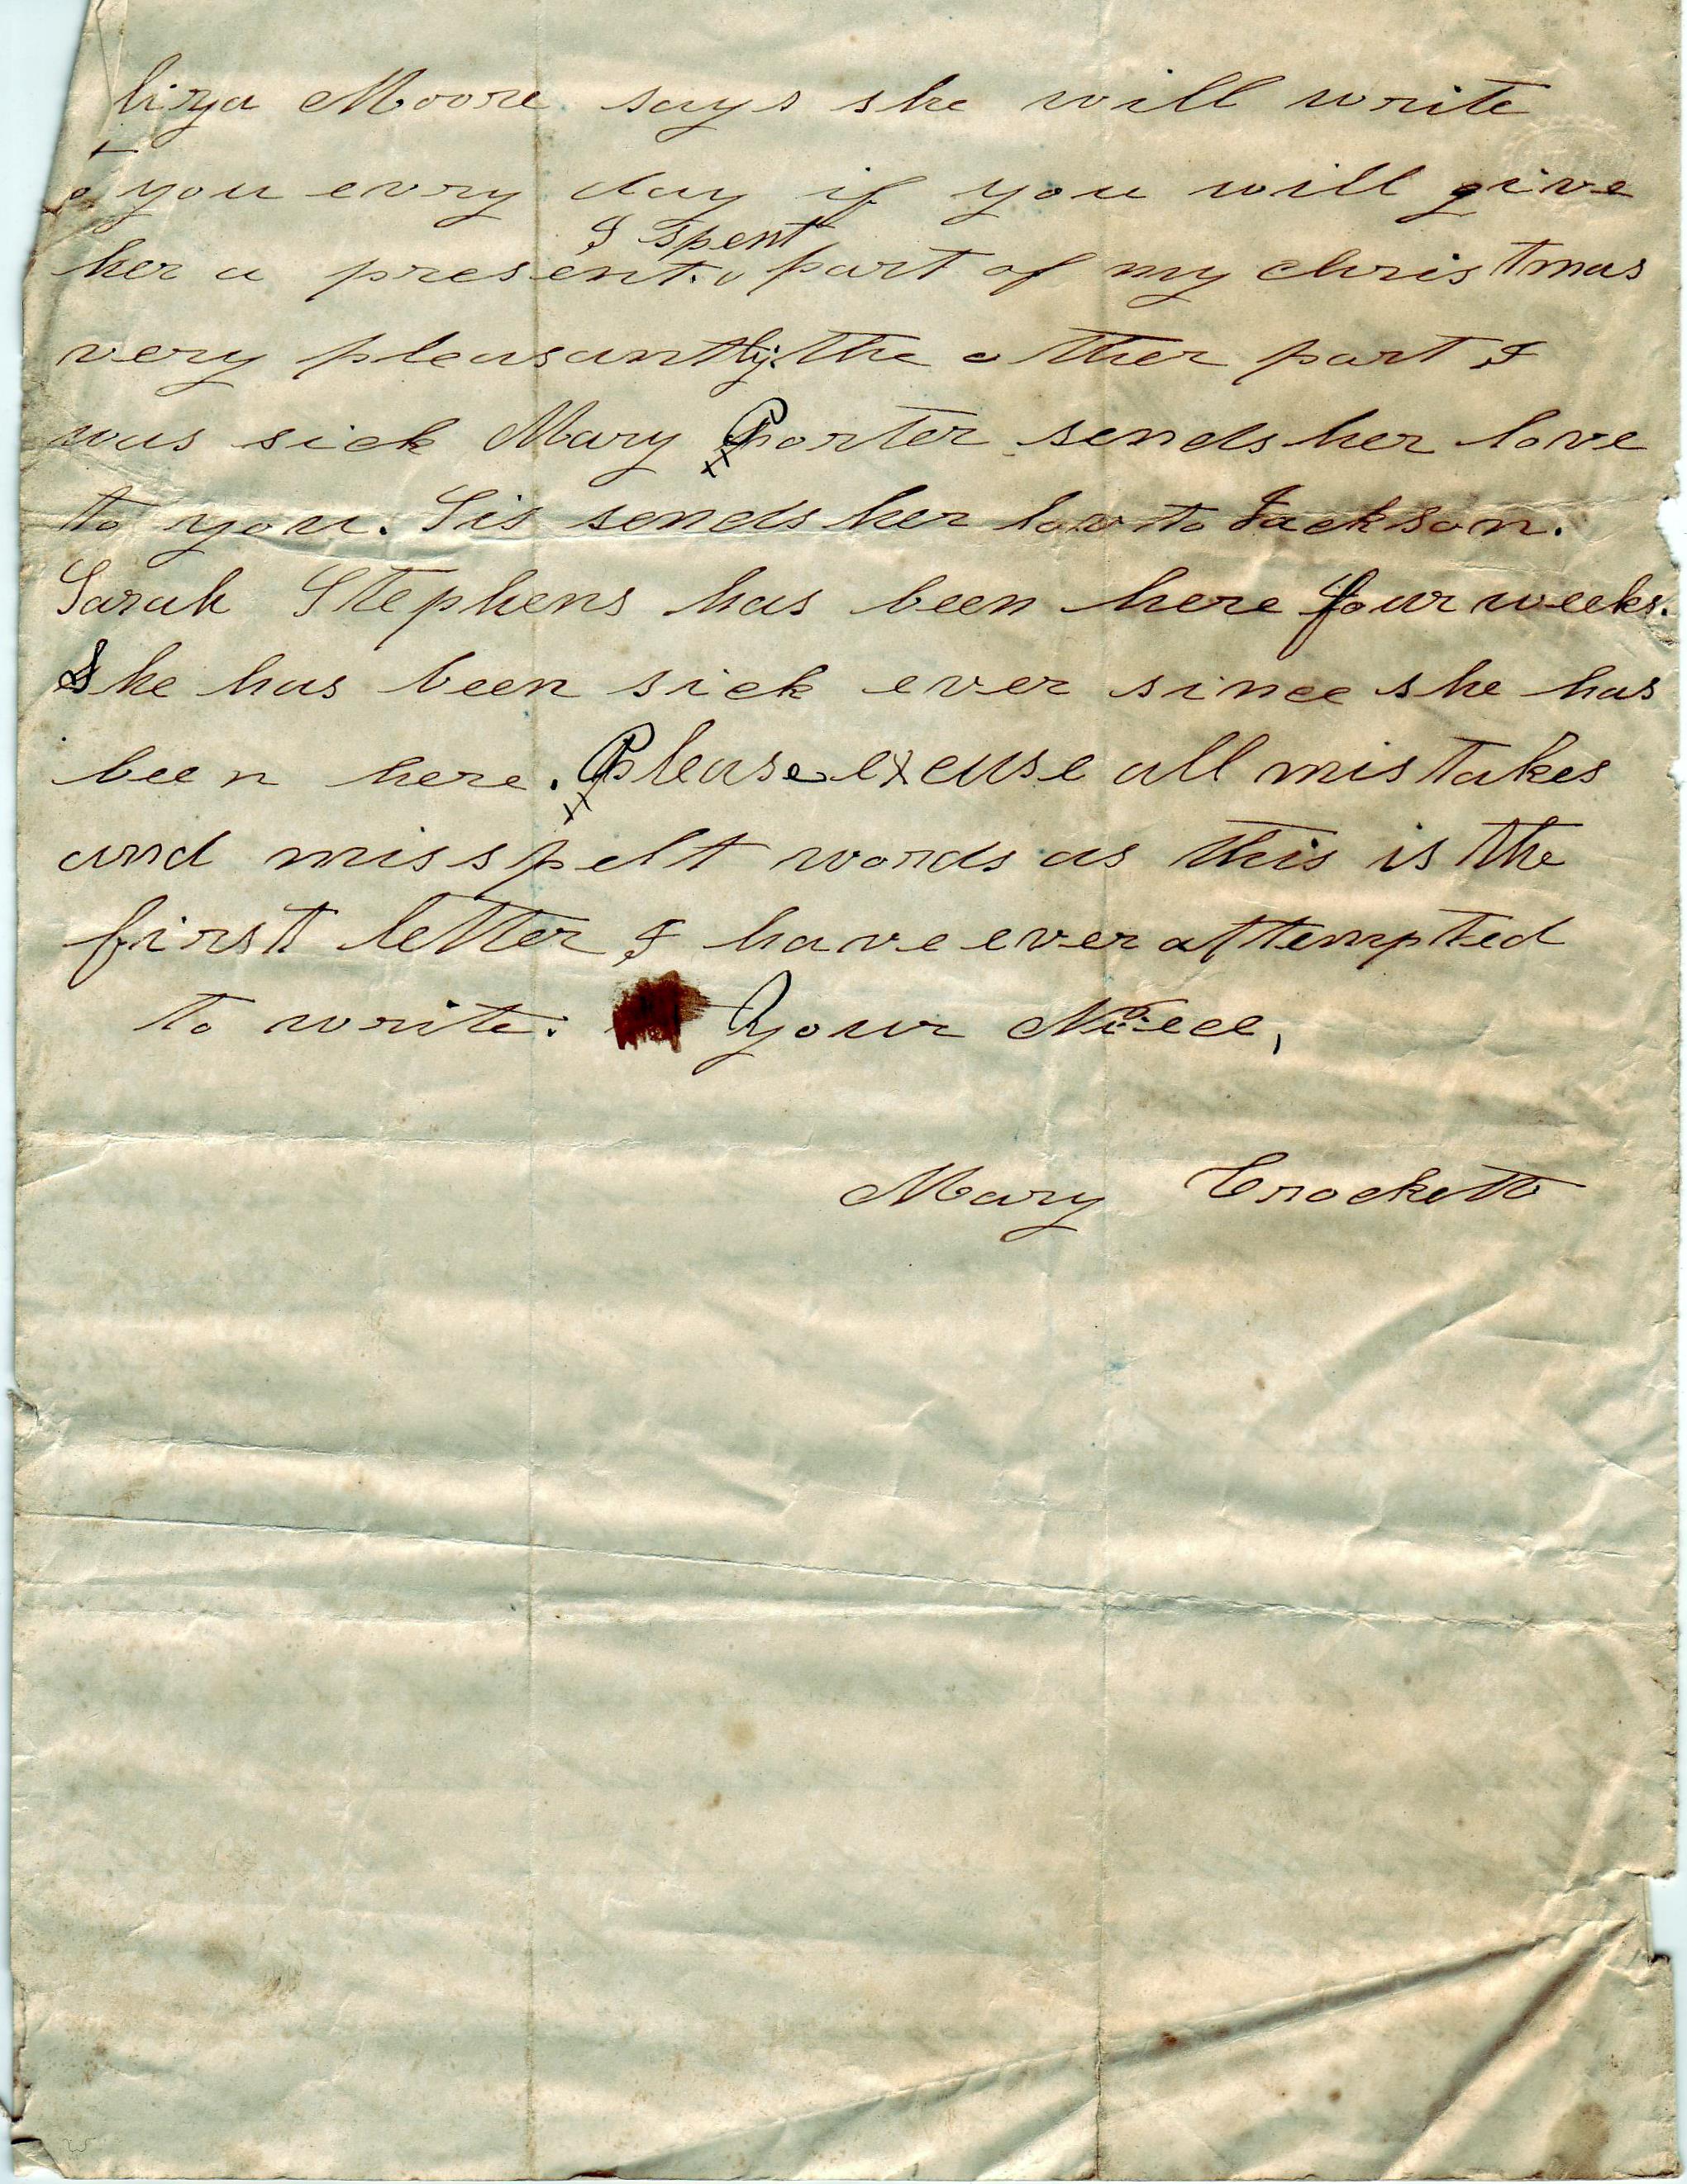 liza Moore says she will write
to you evry day if you will give
I spent
her a present. part of my christmas
very pleasantly. the other part I
was sick Mary Porter sends her love
to you. Sis sends her love to Jackson.
Sarah Stephens has been here four weeks.
She has been sick ever since she has
been here. Please excuse all mistakes
and misspelt words as this is the
first letter I have ever attempted
to write. Your Niece,
Mary Crockett